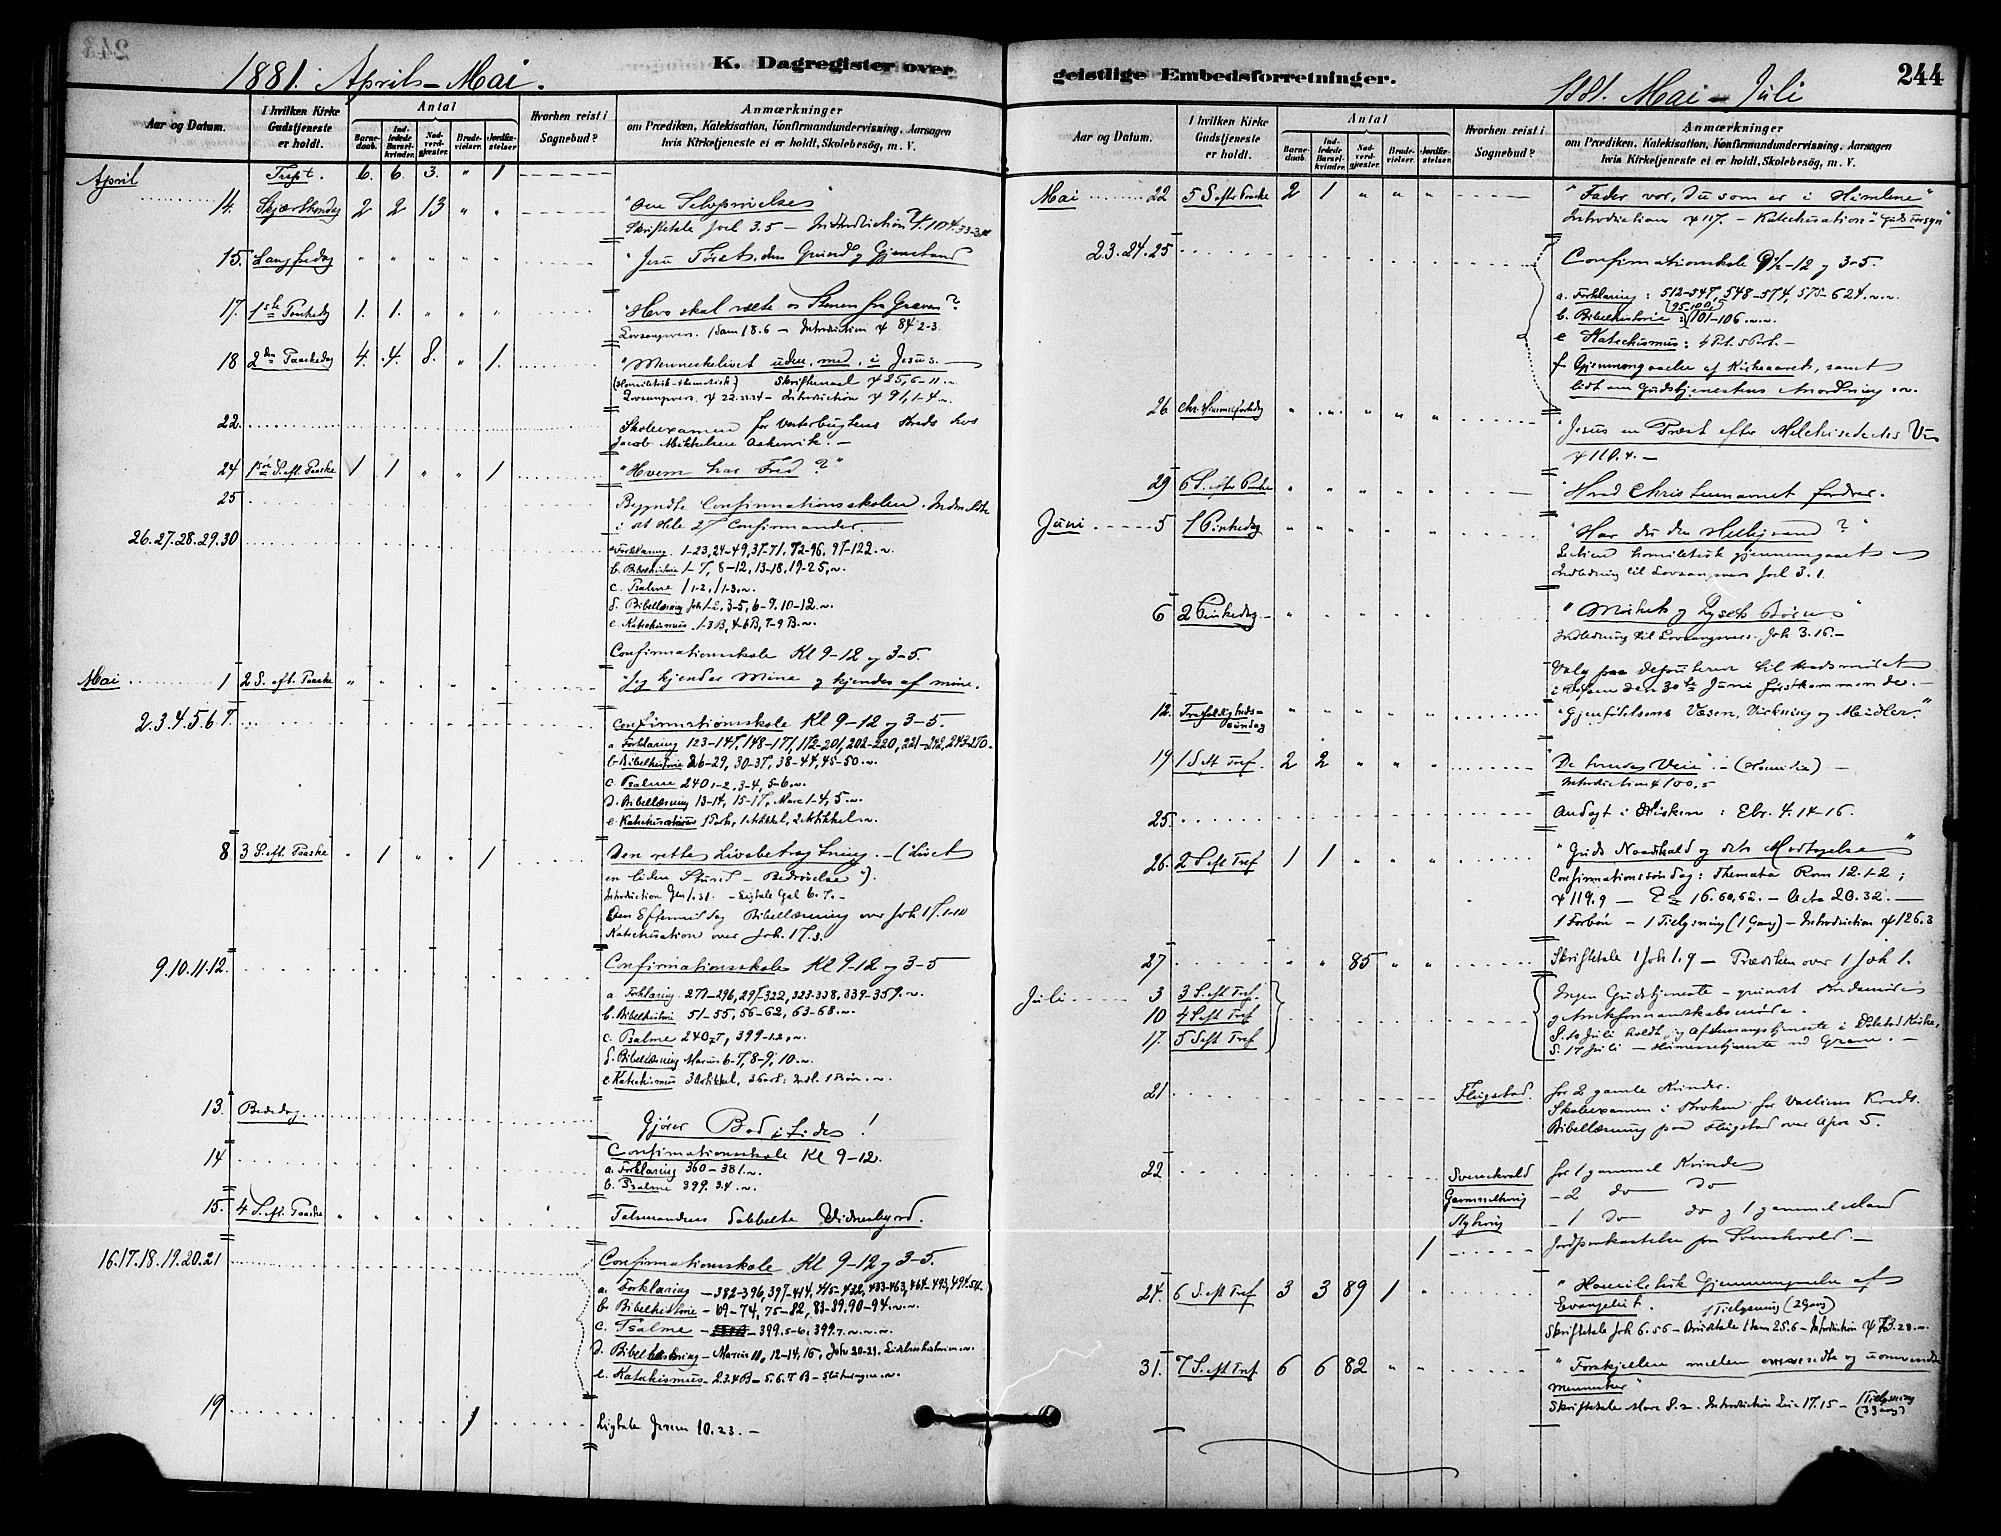 K. Dagregister over
1881. April - Mai.
Aar og Datum.
I hvilken Kirke Gudstjeneste er holdt.
Antal
Barnedaab.
Indledede Barselkvinder.
Nadverdgjæster.
Brudevielser.
Jordfæstelser.
Hvorhen reist i Sognebud?
Anmærkninger
om Prædiken, Katekisation, Konfirmandundervisning, Aarsagen
hvis Kirketjeneste ei er holdt, Skolebesøg, m. V.
April 6. 6. 3. " 1
14. Skjærthorsdag 2 2 13 " "
Skriftetale Joel 3.5 - Introduction
15. Langfredag " " " " "
17. 1ste Paaskedag 1. 1. " " "
"Hvo skal vælte os Stenen fra Graven?"
1 Sam 18.6 - Introduction ψ 84 2-3.
18 2den Paaskedag 4. 4. 8. " 1.
"Menneskelivet uden, med, i Jesus.
ψ 25, 6-11.
ψ 22.23.24 - Introduction ψ 91, 1-4
22.
Skoleexamen for Vesterbugtens Kreds hos
Jacob Mikkelsen
24 1ste S. eft. Paaske 1 1 " " 1
"Hvem har Fred?"
25
Begyndte Confirmationsskolen.
i det Hele 27 Confirmander
26.27.28.29.30
a. Forklaring 1-23, 24-49, 37-71, 72-96, 97-122.
b. Bibelhistorie 1-7, 8-12, 13-18, 19-25,
c. Psalme 1 1-2, 1 1-3.
d. Bibellæsning Joh 1-2, 3-5, 6-9, 10-12.
e. Katechismus 1-3 B, 4-6 B, 7-9 B.
Confirmationsskole Kl 9-12 og 3-5.
Mai 1 2 S. eft. Paaske " " " " "
"Jeg kjender Mine og kjendes af mine.
2.3.4.5.6.7.
Confirmationsskole Kl 9-12 og 3-5.
a Forklaring 123-147, 148-171, 172-201, 202-220, 221-242, 243-270
b. Bibelhistorie 26-29, 30-37, 38-44, 45-50.
c. Psalme 240 1-2, 3-4, 5-6.
d. Bibellæsning 13-14, 15-17, Marc 1-4, 5.
e. Katechismus 1 Part, 1 Artikkel, 2 Artikkel.
8 3 S. eft. Paaske " 1 " " 1
Den rette Livsbetragtning. - (Livet
en liden Stund - Bedrøvelse).
Introduction Gen 1.31 - Ligtale Gal 6.7. -
Den Eftermiddag Bibellæsning over Joh 17. 1-10
Katechisation over Joh. 17.3.
9.10.11.12.
Confirmationsskole Kl 9-12 og 3-5
a. Forklaring 271-296, 297-322, 323-338, 339-359.
b. Bibelhistorie 51-55, 56-62, 63-68.
c. Psalme 240 7, 399 1-2.
d. Bibellæsning Marcus 6-7, 8-9, 10.
e. Katechismus 3 Artikkel, 3 Part: Indl. 1 Bøn.
13. Bededag
Gjører Bod i Tide!
14
Confirmationsskole Kl 9-12.
a. Forklaring 360-381.
b. Psalme 399. 3.4.
15. 4 S. eft. Paaske " " " " "
Talsmandens dobbelte Vidnesbyrd.
16.17.18.19.20.21
Confirmationsskole Kl 9-12 og 3-5.
a. Forklaring - 382-396, 397-414, 415-432, 433-463, 464-493, 494-511.
b. Bibelhistorie - 69-74, 75-82, 83-89, 90-94.
c. Psalme - 399. 5-6, 399. 7.
d. Bibellæsning - Marcus 11, 12-14, 15, Joh 20-21. Lidelseshistorien.
e. Katechismus - 2.3.4 B - 5.6.7 B - Slutningen.
19 1
Ligtale Jerem 10.23. -
geistlige Embedsforretninger.
1881. Mai - Juli
244
Aar og Datum.
I hvilken Kirke Gudstjeneste er holdt.
Antal
Barnedaab.
Indledede Barselkvinder.
Nadverdgjæster.
Brudevielser.
Jordfæstelser.
Hvorhen reist i Sognebud?
Anmærkninger
om Prædiken, Katekisation, Konfirmandundervisning, Aarsagen
hvis Kirketjeneste ei er holdt, Skolebesøg, m. V.
Mai 22 5 S efter Paaske 2 1 " " "
"Fader vor, du som er i Himlene"
Introduction ψ 117. - Katechisation - "Guds Forsyn"
23.24.25
Confirmationsskole 9½-12 og 3-5.
a. Forklaring: 512-547, 548-574, 575-624.
b. Bibelhistorie: 95-100, 101-106.
e Katechismus: 4 Part. 5 Part. -
f. Gjennemgaaelse af Kirkeaaret, samt
lidt om Gudstjenestens Anordning.
26 Chr. Himmelfartsdag " " " " "
"Jesus en Præst efter Melchisedecks Vis
ψ 110.4. -
29 6 S. efter Paaske " " " " "
"Hvad Christennavnet fordrer.
Juni 5 1 Pintsedag " " " " "
"Har du den Helligaand?"
homiletisk gjennemgaaet
Indledning til Lovsangsvers Joel 3.1.
6 2 Pintsedag " " " " "
"Mørkets og Lysets Børn"
Indledning til Lovsangsvers. Joh 3.16. -
Valg paa til Kredsmødet
i den 30te Juni førstkommende. -
12. Trefoldigheds-
søndag " " " " "
"Gjenfødelsens Væsen, Virkning og Midler."
19 1 S eft Tref. 2 2 " " "
"De tvende Veie". - (Homilie) -
Introduction ψ 100.5
25.
Andagt i Kirken: Ebr. 4.14-16.
26. 2 S eft Tref 1 1 " " "
"Guds Naadekald og dets Modtagelse"
Confirmationssøndag: Themata Rom 12.1-2;
ψ 119.9 - Ez 16.60,62. - Acta 20.32. -
1 Forbøn - 1 Tillysning (1 Gang) - Introduction ψ 126.3
27 " " 85 " "
Skriftetale 1 Joh 1.9 - Prædiken over 1 Joh 1.
Juli 3 3 S. eft Tref.
10 4 S eft Tref
17. 5 S eft Tref
Ingen Gudstjeneste - grundet
S. 10 Juli holdt jeg Aftensangstjeneste i Dolstad Kirke,
S. 17 Juli - Messetjeneste ved Grane. -
21 Flugstad.
for 2 gamle Kvinder.
Skoleexamen i for Kreds.
Bibellæsning paa Flugstad over Apoc 5.
22 Svenskvold
for 1 gammel Kvinde
- 2 do do
- 1 do do og 1 gammel Mand
1
Jordpaakastelse paa Svenskvold -
24. 6 S. eft Tref 3 3 89 1 "
"Homiletisk Gjennemgaaelse af
Evangeliet. 1 Tillysning (2 Gang)
Skriftetale Joh 6.56 - Brudetale 1 Sam 25.6 - Introduction ψ 73.28.
31. 7 S. eft Tref. 6 6 82 " "
"Forskjellen mellem omvendte og uomvendte
Mennesker"
Skriftetale Marc 8.2. Introduction Luc 17.15 - 1 Tillysning
(3 Gang)